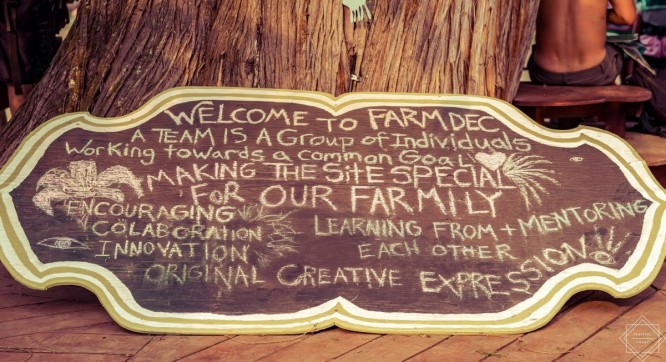 WELCOME TO FARM DEC
A TEAM IS A GROUP of INDIVIDUALS
WORKING towards a common GOAL
MAKING THE SITE SPECIAL
FOR OUR FARMILY
ENCOURAGING
COLABORATION
INNOVATION
LEARNING FROM + MENTORING
EACH OTHER
ORIGINAL CREATIVE EXPRESSION!